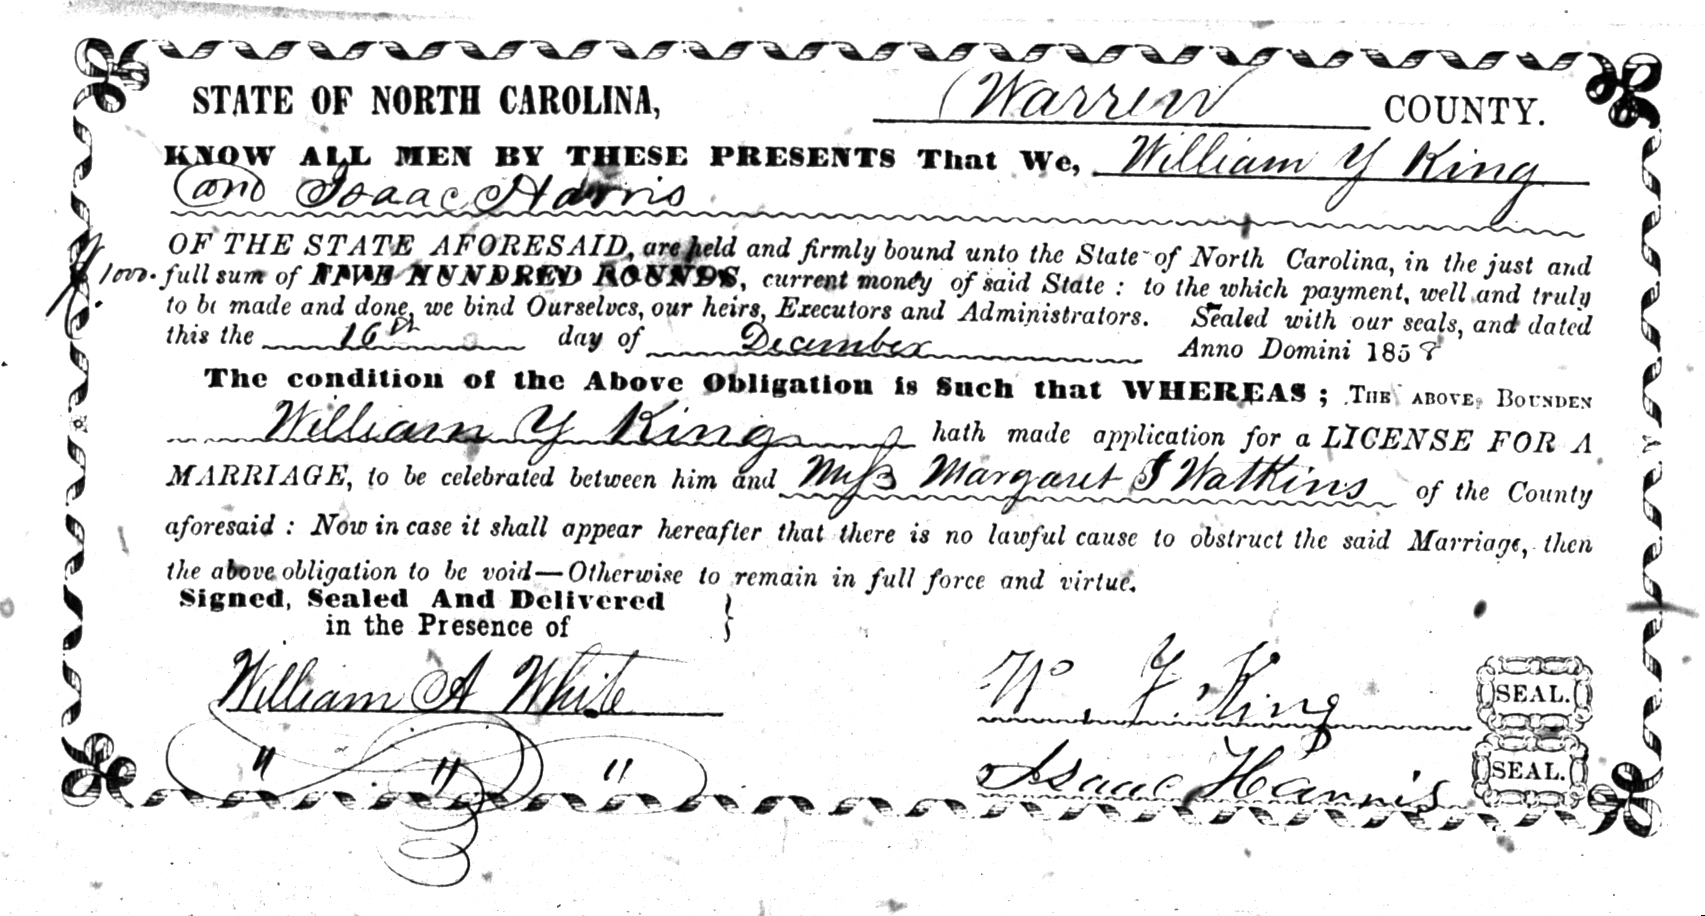 STATE OF NORTH CAROLINA, Warren COUNTY.
KNOW ALL MEN BY THESE PRESENTS That We, William Y King
and Isaac Harris
OF THE STATE AFORESAID, are held and firmly bound unto the State of North Carolina, in the just and
$1000. full sum of FIVE HUNDRED POUNDS, current money of said State : to the which payment, well and truly
to be made and done, we bind Ourselves, our heirs, Executors and Administrators. Sealed with our seals, and dated
this the 16th day of December Anno Domini 1858
The condition of the Above Obligation is Such that WHEREAS ; THE ABOVE BOUNDEN
William Y King hath made application for a LICENSE FOR A
MARRIAGE, to be celebrated between him and Miss Margaret J Watkins of the County
aforesaid : Now in case it shall appear hereafter that there is no lawful cause to obstruct the said Marriage, then
the above obligation to be void—Otherwise to remain in full force and virtue.
Signed, Sealed And Delivered }
in the Presence of
William A White W. Y. King SEAL.
" " " Isaac Harris SEAL.